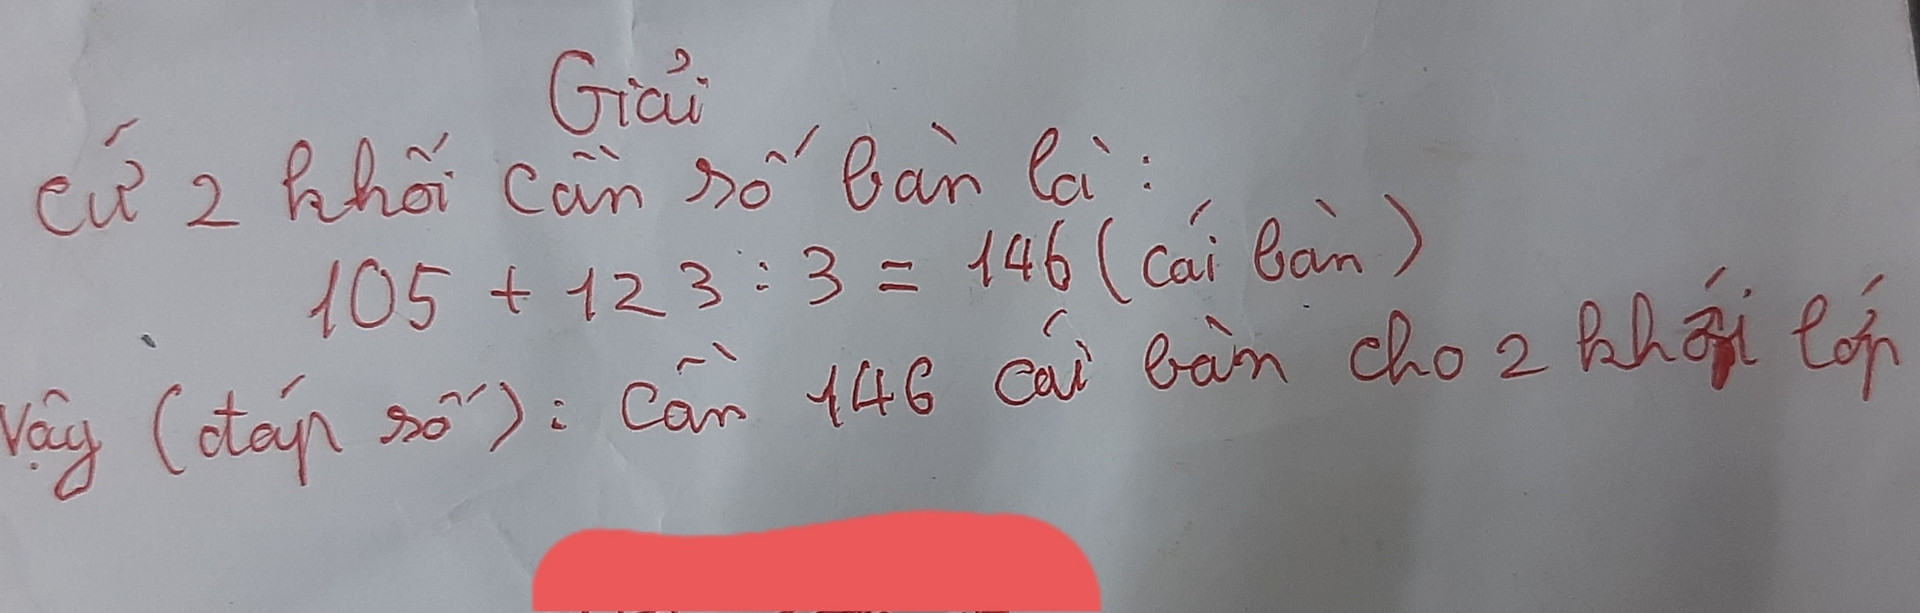 Giải
Cứ 2 khối cần số bàn là:
105 + 123 : 3 = 146 (cái bàn)
Vậy (đáp số): Cần 146 cái bàn cho 2 khối lớp